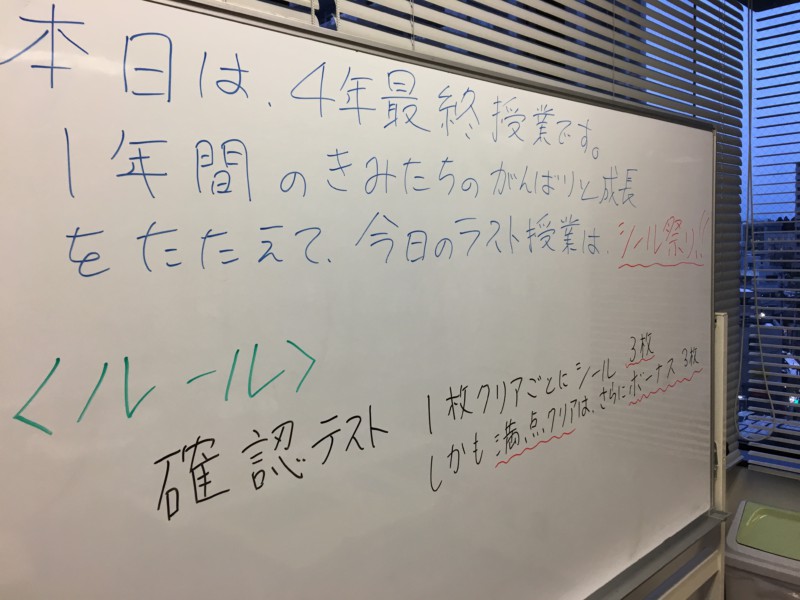 本日は、4年最終授業です。
1年間のきみたちのがんばりと成長
をたたえて、今日のラスト授業は、シール祭り!!
<ルール>
確認テスト 1枚クリアごとにシール3枚
しかも満点クリアは、さらにボーナス3枚